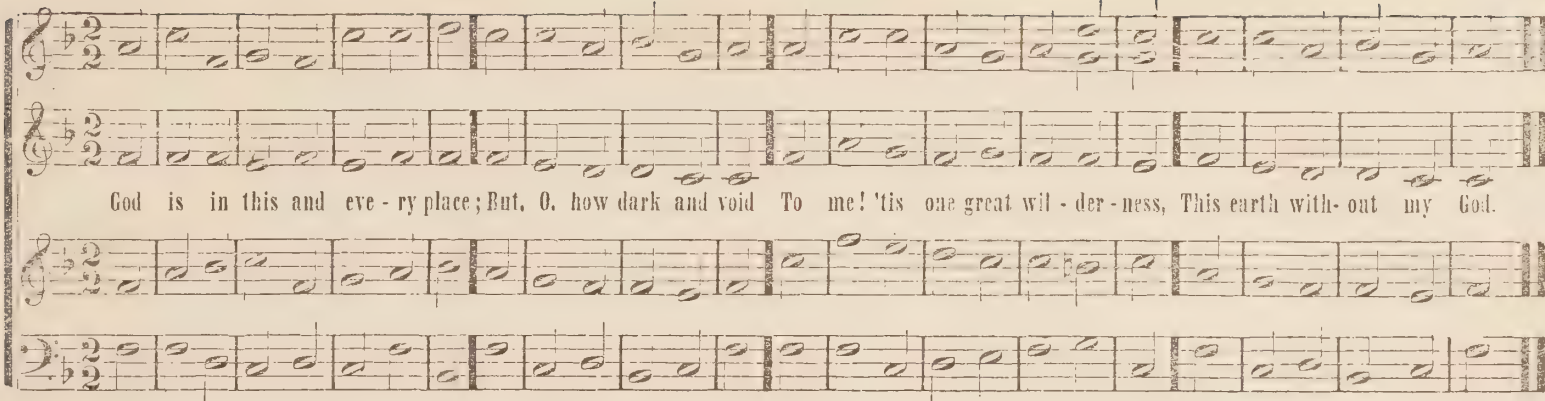 God is in this and eve - ry place; But, O, how dark and void To me! 'tis one great wil - der - ness, This earth with- out my God.